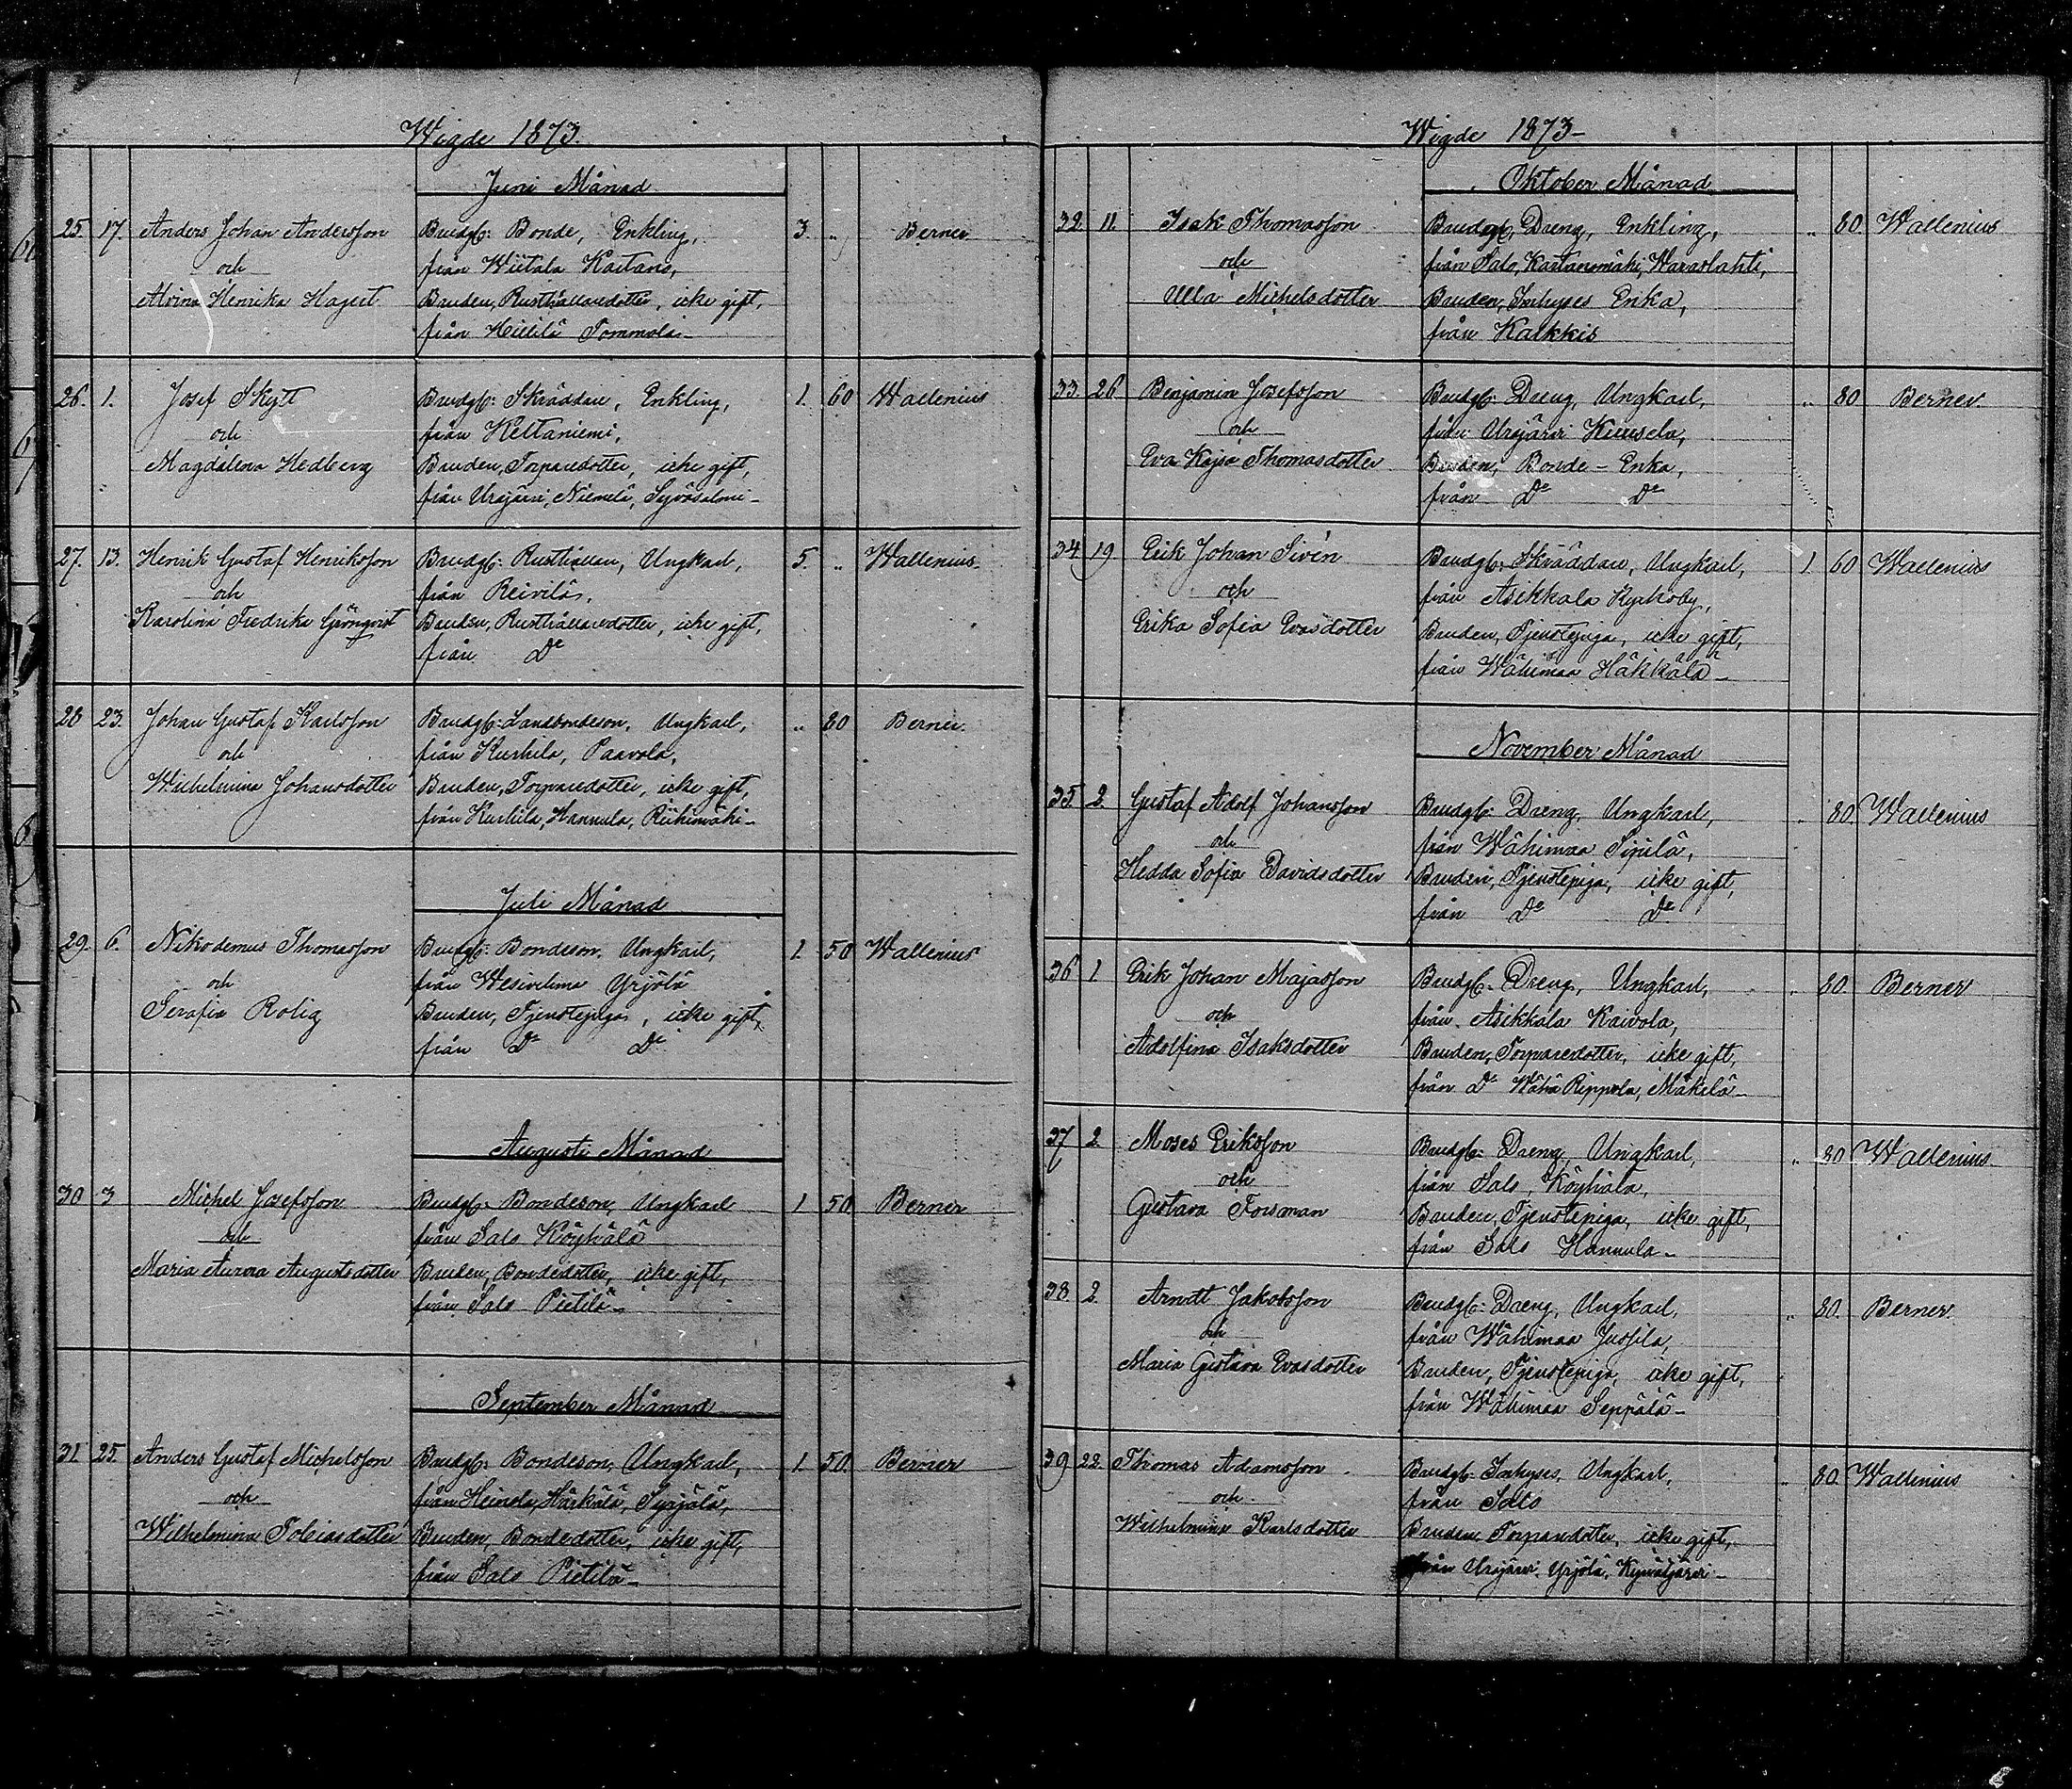 Wigde 1873.
Juni Månad
25. 17. Anders Johan Andersson Brudg: Bonde, Enkling, 3. „ Berner
och från Wiitala Kaitans,
Alvina Henrika Hagert Bruden, Rusthållaredotter, icke gift,
från Hillilä Tommola –
26. 1. Josef Skytt Brudg: Skräddare, Enkling, 1. 60 Wallenius
och från Keltaniemi,
Magdalena Hedberg Bruden, Torparedotter, icke gift,
från Urajärvi, Niemelä, Syväsalmi –
27. 13. Henrik Gustaf Henriksson Brudg: Rusthållare, Ungkarl, 5. „ Wallenius
och från Reivilä,
Karolina Fredrika Grönqvist Bruden, Rusthållaredotter, icke gift,
från Do
28 23. Johan Gustaf Karlsson Brudg: Landbondeson, Ungkarl, „ 80 Berner.
och från Kurhila, Paavola,
Wilhelmina Johansdotter Bruden, Torparedotter, icke gift,
från Kurhila, Hannula, Riihimäki –
Juli Månad
29. 6. Nikodemus Thomasson Brudg: Bondeson, Ungkarl, 1. 50 Wallenius
och från Wesivehma Yrjölä
Serafia Rolig Bruden, Tjenstepiga, icke gift,
från Do Do
Augusti Månad
30 3 Michel Josefsson Brudg: Bondeson, Ungkarl 1 50 Berner
och från Salo Köyhälä
Maria Aurora Augustsdotter Bruden, Bondedotter, icke gift,
från Salo Pietilä –
September Månad
31. 25. Anders Gustaf Michelsson Brudg: Bondeson, Ungkarl, 1. 50. Berner
och från Heinola, Härkälä, Syrjälä,
Wilhelmina Tobiasdotter Bruden, Bondedotter, icke gift,
från Salo Pietilä –
Wigde 1873 –
Oktober Månad
32. 11. Isak Thomasson Brudg, Dreng, Enkling, „ 80 Wallenius
och från Salo, Kartanomäki, Waraslahti,
Ulla Michelsdotter Bruden, Inhyses Enka,
från Kalkkis
33. 26 Benjamin Josefsson Brudg: Dreng, Ungkarl, „ 80 Berner.
och från Urajärvi Kuusela,
Eva Kajsa Thomasdotter Bruden, Bonde – Enka,
från Do Do
34 19 Erik Johan Sivén Brudg: Skräddare, Ungkarl, 1. 60 Wallenius
och från Asikkala Kyrkoby,
Erika Sofia Evasdotter Bruden, Tjenstepiga, icke gift,
från Wähimaa Häkkälä –
November Månad
35. 2. Gustaf Adolf Johansson Brudg: Dreng, Ungkarl, „ 80. Wallenius
och från Wähimaa Sipilä,
Hedda Sofia Davidsdotter Bruden, Tjenstepiga, icke gift,
från Do Do
36 1 Erik Johan Majasson Brudg: Dreng, Ungkarl, „ 80. Berner
och från Asikkala Kaivola,
Adolfina Isaksdotter Bruden, Torparedotter, icke gift,
från Do Wähä Rippola, Mäkelä –
37 2 Moses Eriksson Brudg: Dreng, Ungkarl, „ 80 Wallenius
och från Salo, Köyhälä,
Gustava Forsman Bruden, Tjenstepiga, icke gift,
från Salo Hannula –
38. 2. Arndt Jakobsson Brudg: Dreng, Ungkarl, „ 80. Berner.
och från Wähimaa Jussila,
Maria Gustava Evasdotter Bruden, Tjenstepiga, icke gift,
från Wähimaa Seppälä –
39 22. Thomas Adamsson Brudg: Inhyses, Ungkarl, „ 80 Wallenius
och från Salo
Wilhelmina Karlsdotter Bruden Torparedotter, icke gift,
från Urajärvi, Yrjölä,